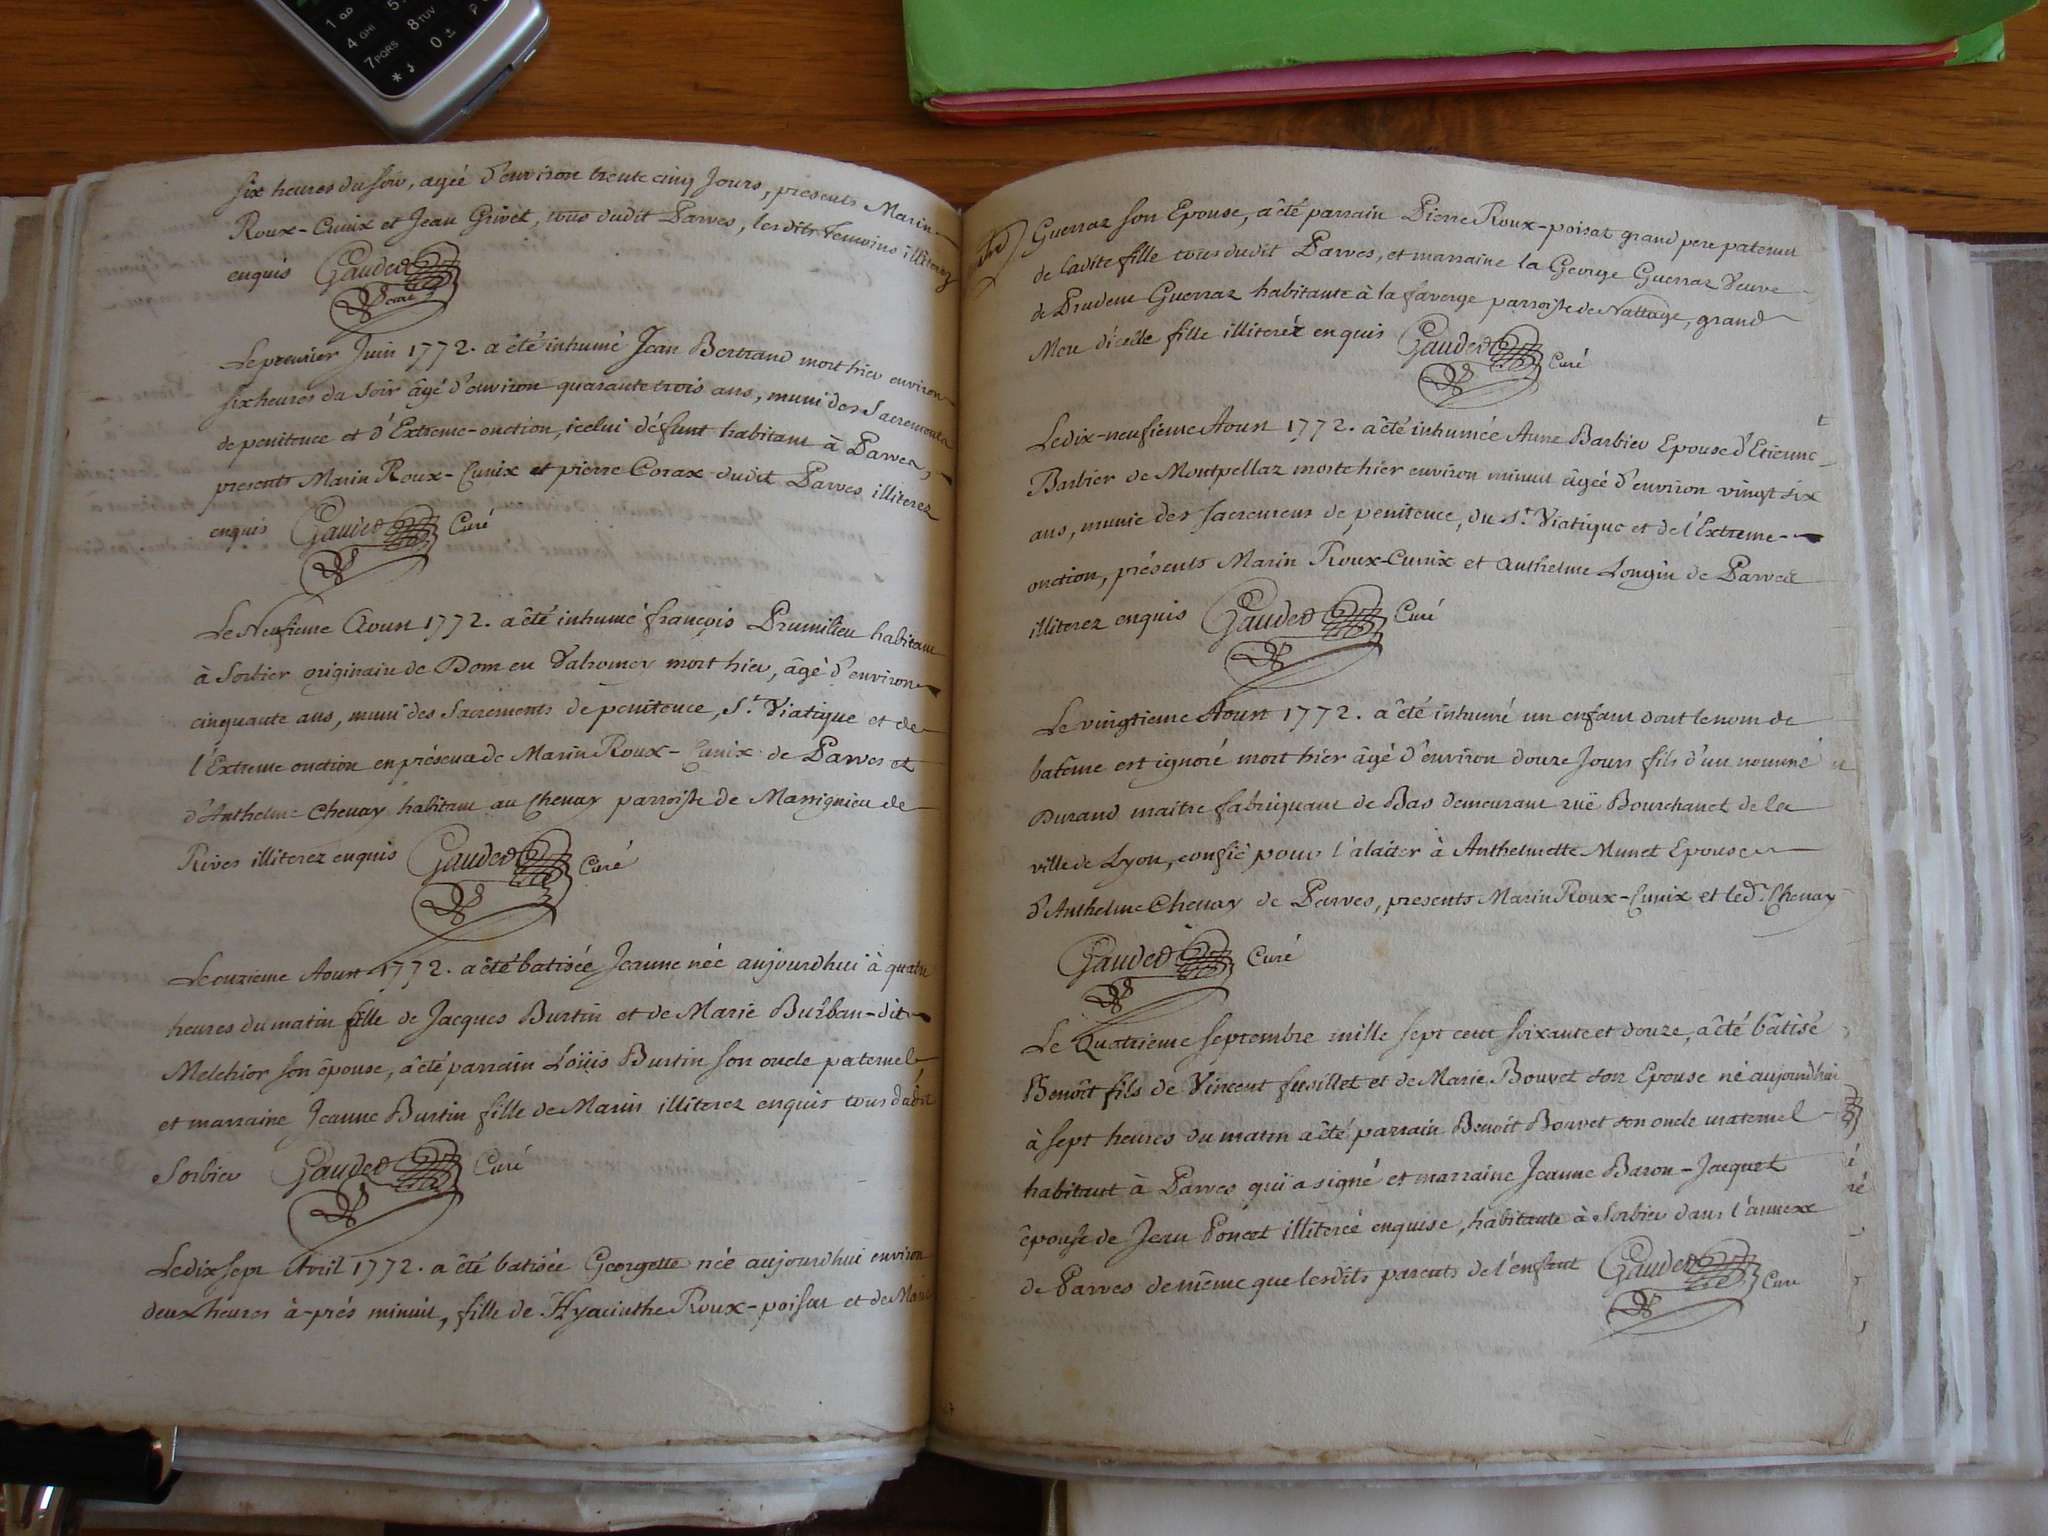 1
4 GHI
7 PQRS
8 TUV
0
*
six heures du soir, agée d'environ trente cinq Jours, presents Marin
Roux-Cunix et Jean Grivet, tous dudit Parves, lesdits temoins illiterez
enquis Gaudet
Curé
Le premier Juin 1772. a été inhumé Jean Bertrand mort hier environ
six heures du soir âgé d'environ quarante trois ans, muni des Sacrements
de penitence et d'Extreme-onction, icelui défunt habitant à Parves,
presents Marin Roux-Cunix et pierre Corax dudit Parves illiterez
enquis Gaudet Curé
Le Neufieme Aoust 1772. a été inhumé françois Prumilieu habitant
à Sorbier originaire de Dom en Valromey mort hier, âgé d'environ
cinquante ans, muni des Sacrements de penitence, St. Viatique et de
l'Extreme onction en présence de Marin Roux-Cunix de Parves et
d'Anthelme Chenay habitant au Chenay parroisse de Massignieu de
Rives illiterez enquis Gaudet Curé
Le onzieme Aoust 1772. a été batisée Jeanne née aujourdhui à quatre
heures du matin fille de Jacques Burtin et de Marie Burban-dit
Melchior son épouse, a été parrain Loüis Burtin son oncle paternel
et marraine Jeanne Burtin fille de Marin illiterez enquis tous dudit
Sorbier Gaudet Curé
Le dix sept Avril 1772. a été batisée Georgette née aujourdhui environ
deux heures à-prés minuit, fille de Hyacinthe Roux-poisat et de Marie
Guerraz son Epouse, a été parrain Pierre Roux-poisat grand pere paternel
de ladite fille tous dudit Parves, et marraine la George Guerraz Veuve
de Prudent Guerraz habitante à la faverge parroisse de Nattage, grand
Mere d'icelle fille illiteréz enquis Gaudet Curé
Le dix-neufieme Aoust 1772. a été inhumée Anne Barbier Epouse d'Etienne
Barbier de Montpellaz morte hier environ minuit âgée d'environ vingt six
ans, munie des sacremens de penitence, du St. Viatique et de l'Extreme-
onction, présents Marin Roux-Cunix et Anthelme Longin de Parves
illiterez enquis Gaudet Curé
Le vingtieme Aoust 1772. a été inhumé un enfant dont le nom de
batême est ignoré mort hier âgé d'environ douze Jours fils d'un nommé
Durand maitre fabriquant de Bas demeurant rüe Bourchanet de la
ville de Lyon, confié pour l'alaiter à Anthelmette Munet Epouse
d'Anthelme Chenay de Parves, presents Marin Roux-Cunix et led. Chenay
Gaudet Curé
Le Quatrieme septembre mille sept cent soixante et douze, a été bâtisé
Benoît fils de Vincent fusillet et de Marie Bouvet son Epouse né aujourdhui
à sept heures du matin a été parrain Benoit Bouvet son oncle maternel
habitant à Parves qui a signé et marraine Jeanne Baron-Jacquet
épouse de Jean Poncet illiterée enquise, habitante à Sorbier dans l'annexe
de Parves de même que lesdits parents de l'enfant Gaudet Curé